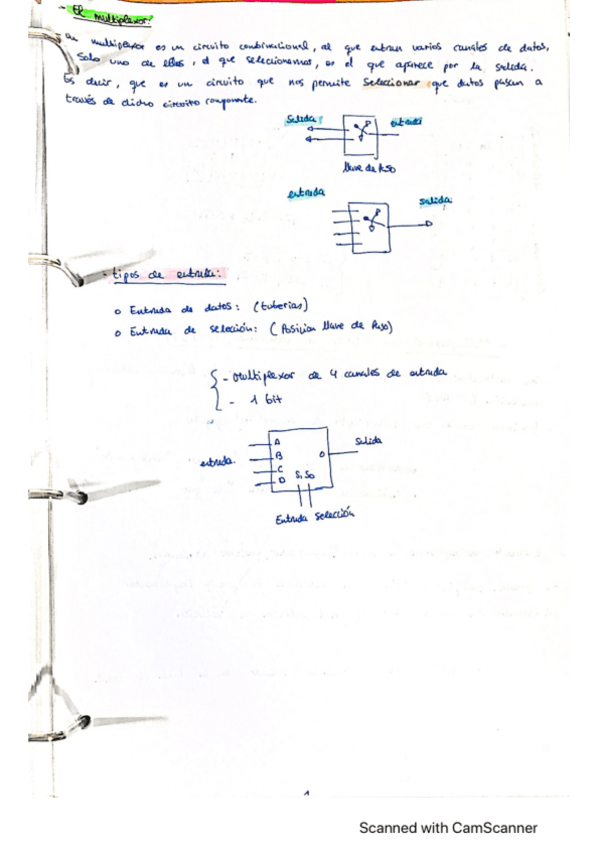 - El multiplexor:
Un multiplexor es un circuito combinacional, al que entran varios canales de datos,
Solo uno de ellos, el que seleccionamos, es el que aparece por la salida.
Es decir, que es un circuito que nos permite Seleccionar que datos pasan a
través de dicho circuito componente.
Salida: entrada
llave de paso
entrada salida
- tipos de entrada:
o Entrada de datos: (tuberias)
o Entrada de selección: (Posicion llave de Paso)
- Multiplexor de 4 canales de entrada
- 1 bit
A
B O Salida
entrada.
C
D S1 S0
Entrada selección
1
Scanned with CamScanner